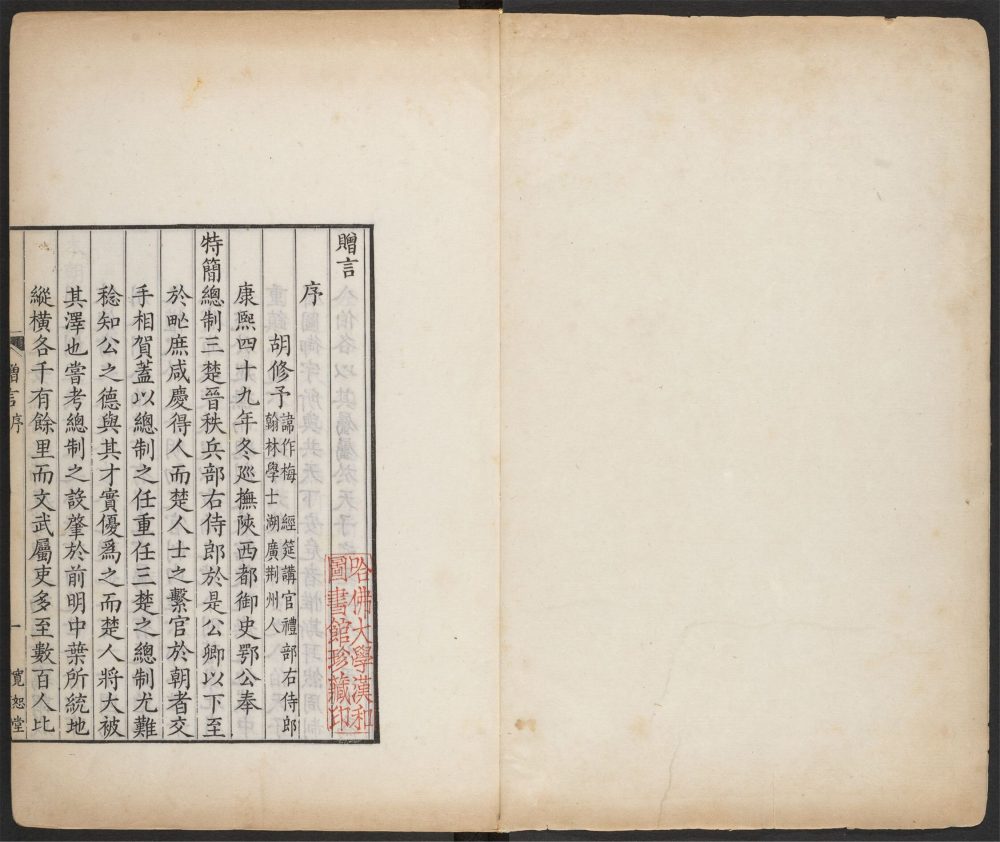 贈言
序
胡修予諱作梅 經筵講官禮部右侍郎
翰林學士湖廣荆州人
康熙四十九年冬廵撫陝西都御史鄂公奉
特簡總制三楚晉秩兵部右侍郎於是公卿以下至
於甿庶咸慶得人而楚人士之繫官於朝者交
手相賀蓋以總制之任重任三楚之總制尤難
稔知公之德與其才實優爲之而楚人將大被
其澤也嘗考總制之設肇於前明中葉所統地
縱橫各千有餘里而文武屬吏多至數百人比
贈言序 一 寛恕堂
哈佛大學漢和
圖書館珍藏印